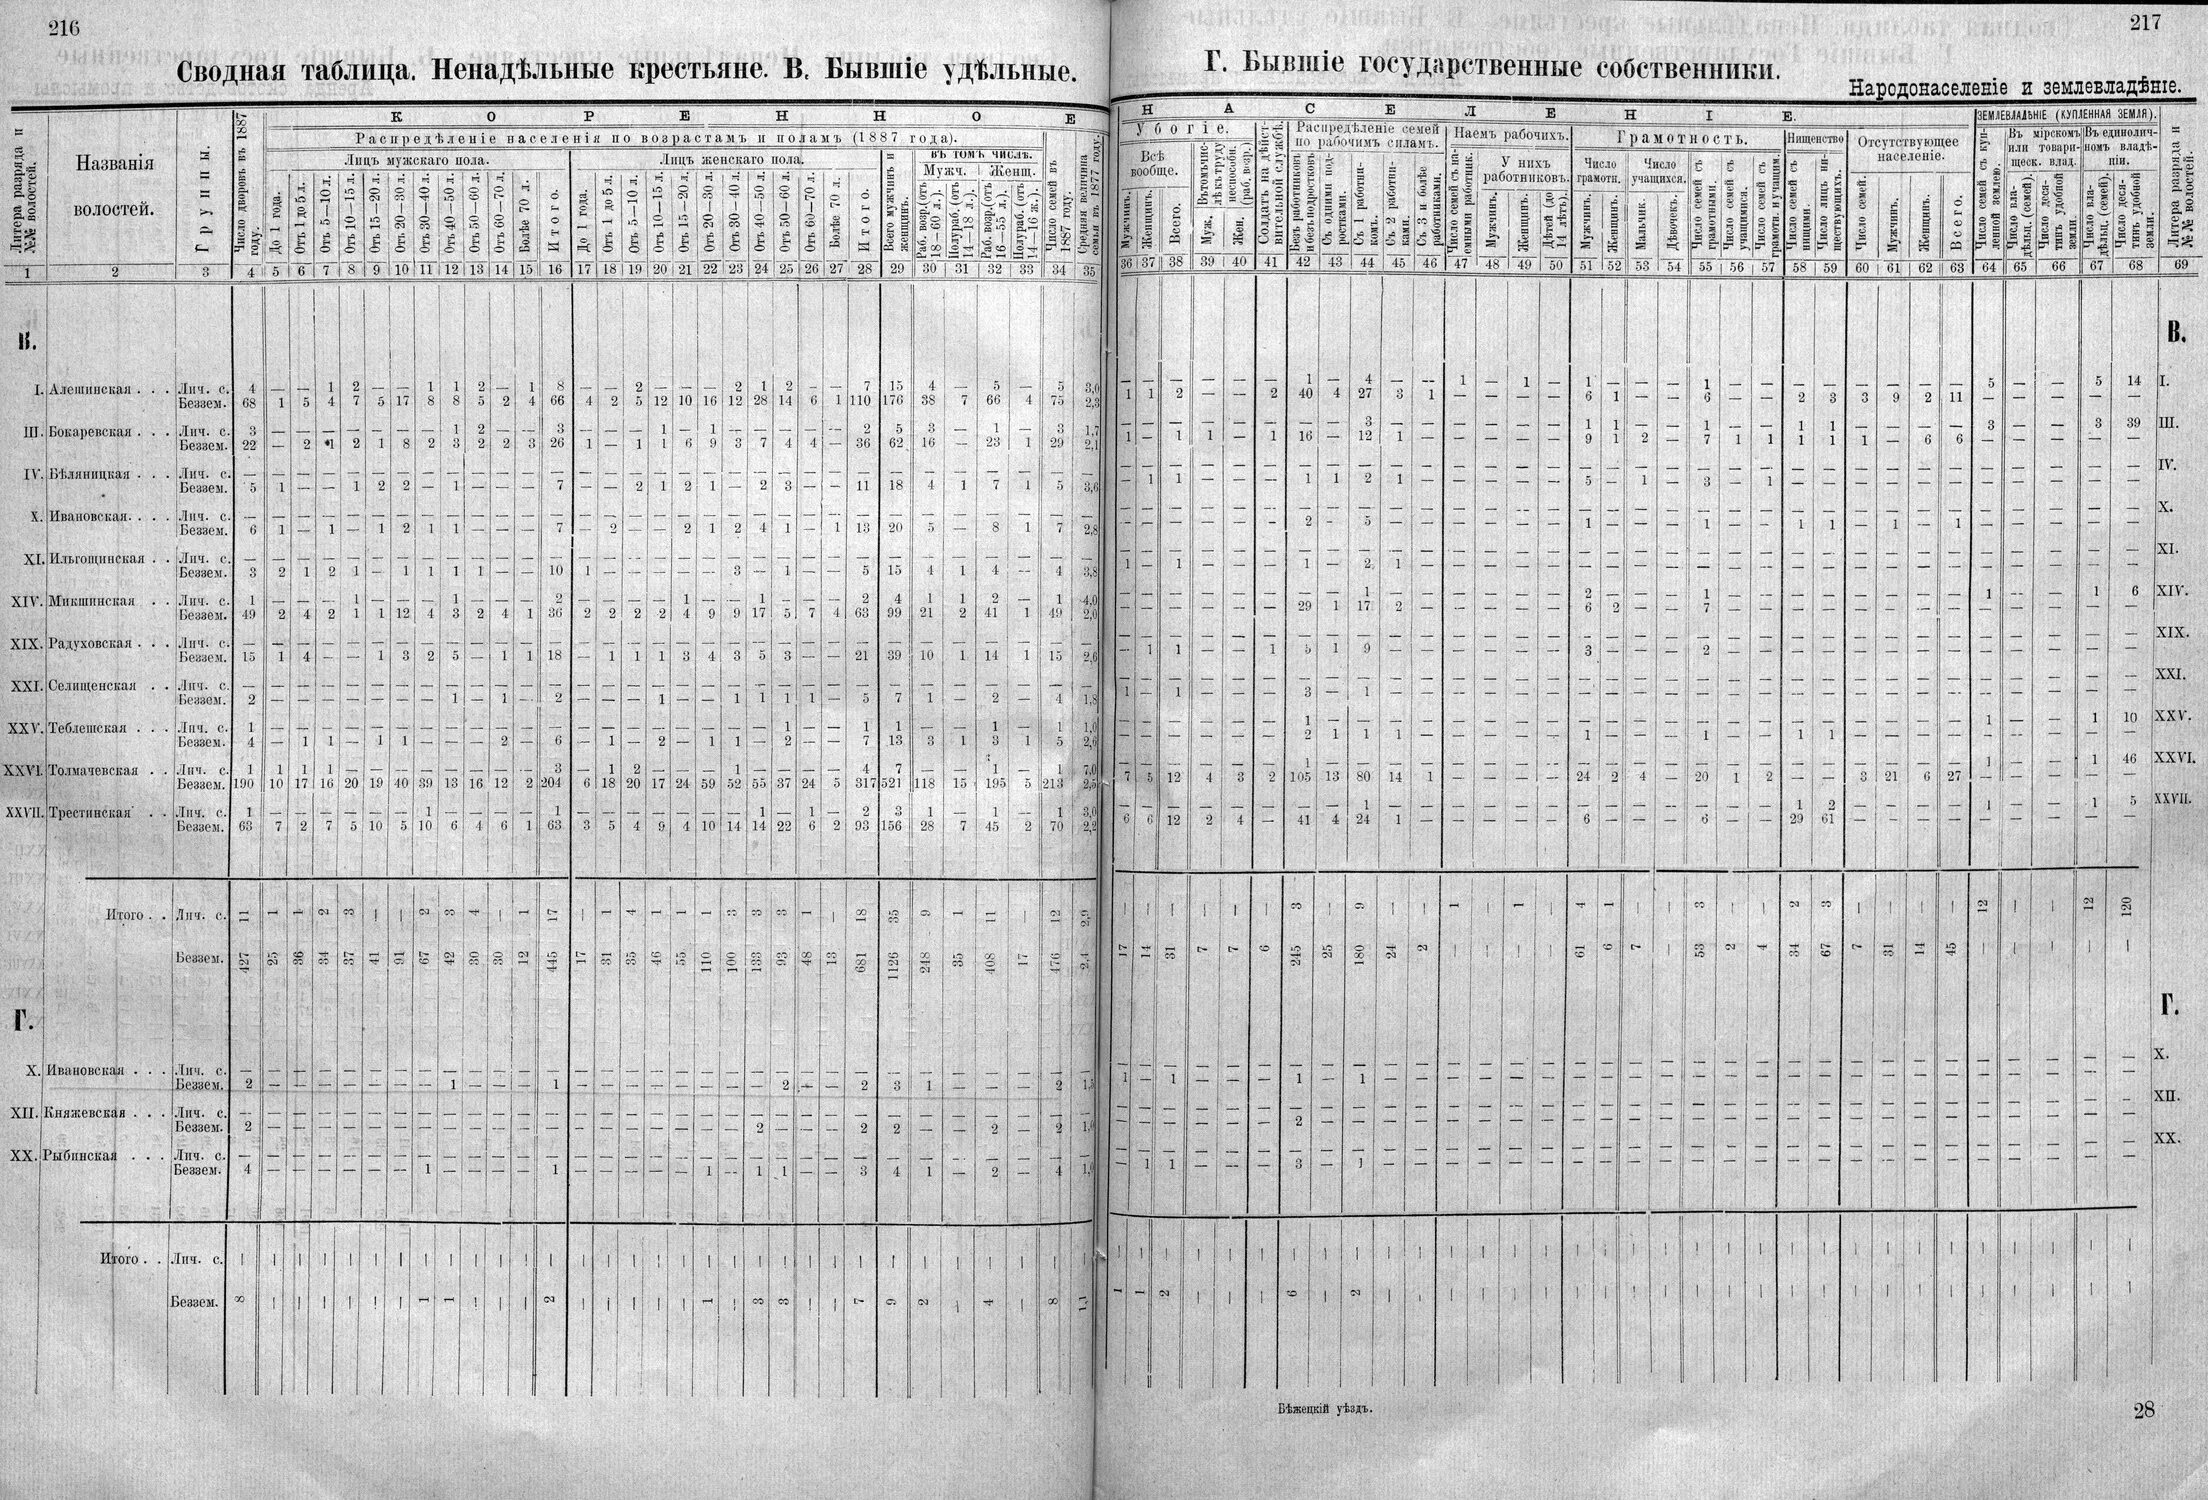 216
Сводная таблица. Ненадѣльные крестьяне. В. Бывшіе удѣльные.
КОРЕННОЕ
Распредѣленіе населенія по возрастамъ и поламъ (1887 года).
Литера разряда и №№ волостей.
Названія волостей.
Группы.
Число дворовъ въ 1887 году.
Лицъ мужскаго пола.
До 1 года.
Отъ 1 до 5 л.
Отъ 5—10 л.
Отъ 10—15 л.
Отъ 15—20 л.
Отъ 20—30 л.
Отъ 30—40 л.
Отъ 40—50 л.
Отъ 50—60 л.
Отъ 60—70 л.
Болѣе 70 л.
Итого.
Лицъ женскаго пола.
До 1 года.
Отъ 1 до 5 л.
Отъ 5—10 л.
Отъ 10—15 л.
Отъ 15—20 л.
Отъ 20—30 л.
Отъ 30—40 л.
Отъ 40—50 л.
Отъ 50—60 л.
Отъ 60—70 л.
Болѣе 70 л.
Итого.
Всего мужчинъ и женщинъ.
въ томъ числѣ.
Мужч.
Раб. возр. (отъ 18—60 л.).
Полураб. (отъ 14—18 л.).
Женщ.
Раб. возр. (отъ 16—55 л.).
Полураб. (отъ 14—16 ж.).
Число семей въ 1887 году.
Средняя величина семьи въ 1877 году.
1 2 3 4 5 6 7 8 9 10 11 12 13 14 15 16 17 18 19 20 21 22 23 24 25 26 27 28 29 30 31 32 33 34 35
В.
I. Алешинская . . . Лич. с. 4 — — 1 2 — — 1 1 2 — 1 8 — — 2 — — — 2 1 2 — — 7 15 4 — 5 — 5 3,0
Беззем. 68 1 5 4 7 5 17 8 8 5 2 4 66 4 2 5 12 10 16 12 28 14 6 1 110 176 38 7 66 4 75 2,3
III. Бокаревская . . . Лич. с. 3 — — — — — — — 1 2 — — 3 — — — 1 — 1 — — — — — 2 5 3 — 1 — 3 1,7
Беззем. 22 — 2 1 2 1 8 2 3 2 2 3 26 1 — 1 1 6 9 3 7 4 4 — 36 62 16 — 23 1 29 2,1
IV. Бѣляницкая . . . Лич. с. — — — — — — — — — — — — — — — — — — — — — — — — — — — — — — — —
Беззем. 5 1 — — 1 2 2 — 1 — — — 7 — — 2 1 2 1 — 2 3 — — 11 18 4 1 7 1 5 3,6
X. Ивановская. . . . Лич. с. — — — — — — — — — — — — — — — — — — — — — — — — — — — — — — — —
Беззем. 6 1 — 1 — 1 2 1 1 — — — 7 — 2 — — 2 1 2 4 1 — 1 13 20 5 — 8 1 7 2,8
XI. Ильгощинская . . Лич. с. — — — — — — — — — — — — — — — — — — — — — — — — — — — — — — — —
Беззем. 3 2 1 2 1 — 1 1 1 1 — — 10 1 — — — — — 3 — 1 — — 5 15 4 1 4 — 4 3,8
XIV. Микшинская . . Лич. с. 1 — — — 1 — — — 1 — — — 2 — — — — 1 — — 1 — — — 2 4 1 1 2 — 1 4,0
Беззем. 49 2 4 2 1 1 12 4 3 2 4 1 36 2 2 2 2 4 9 9 17 5 7 4 63 99 21 2 41 1 49 2,0
XIX. Радуховская . . . Лич. с. — — — — — — — — — — — — — — — — — — — — — — — — — — — — — — — —
Беззем. 15 1 4 — — 1 3 2 5 — 1 1 18 — 1 1 1 3 4 3 5 3 — — 21 39 10 1 14 1 15 2,6
XXI. Селищенская . . Лич. с. — — — — — — — — — — — — — — — — — — — — — — — — — — — — — — — —
Беззем. 2 — — — — — — — 1 — 1 — 2 — — — 1 — — 1 1 1 1 — 5 7 1 — 2 — 4 1,8
XXV. Теблешская . . . Лич. с. 1 — — — — — — — — — — — — — — — — — — — — 1 — — 1 1 — — — — 1 1,0
Беззем. 4 — 1 1 — 1 1 — — — 2 — 6 — 1 — 2 — 1 1 — 2 — — 7 13 3 1 3 1 5 2,6
XXVI. Толмачевская . . Лич. с. 1 1 1 1 — — — — — — — — 3 — 1 2 — — — 1 — — — — 4 7 — — 1 — 1 7,0
Беззем. 190 10 17 16 20 19 40 39 13 16 12 2 204 6 18 20 17 24 59 52 55 37 24 5 317 521 118 15 195 5 213 2,5
XXVII. Трестинская . . Лич. с. 1 — — — — — — 1 — — — — 1 — — — — — — — 1 — 1 — 2 3 1 — 1 — 1 3,0
Беззем. 63 7 2 7 5 10 5 10 6 4 6 1 63 3 5 4 9 4 10 14 14 22 6 2 93 156 28 7 45 2 70 2,2
Итого . . Лич. с. 11 1 1 2 3 — — 2 3 4 — 1 17 — 1 4 1 1 1 3 3 3 1 — 18 35 9 1 11 — 12 2,9
Беззем. 427 25 36 34 37 41 91 67 42 30 30 12 445 17 31 35 46 55 110 100 133 93 48 13 681 1126 248 35 408 17 476 2,4
Г.
X. Ивановская . . . Лич. с. — — — — — — — — — — — — — — — — — — — — — — — — — — — — — — — —
Беззем. 2 — — — — — — — 1 — — — 1 — — — — — — — — 2 — — 2 3 1 — — — 2 1,5
XII. Княжевская . . . Лич. с. — — — — — — — — — — — — — — — — — — — — — — — — — — — — — — — —
Беззем. 2 — — — — — — — — — — — — — — — — — — — 2 — — — 2 2 — — 2 — 2 1,0
XX. Рыбинская . . . Лич. с. — — — — — — — — — — — — — — — — — — — — — — — — — — — — — — — —
Беззем. 4 — — — — — — 1 — — — — 1 — — — — — 1 — 1 1 — — 3 4 1 — 2 — 4 1,0
Итого . . Лич. с. — — — — — — — — — — — — — — — — — — — — — — — — — — — — — — — —
Беззем. 8 — — — — — — 1 1 — — — 2 — — — — — 1 — 3 3 — — 7 9 2 — 4 — 8 1,1
217
Г. Бывшіе государственные собственники.
Народонаселеніе и землевладѣніе.
НАСЕЛЕНІЕ.
Убогіе.
Всѣ вообще.
Мужчинъ.
Женщинъ.
Всего.
Въ томъ числѣ къ труду неспособн. (раб. возр.)
Муж.
Жен.
Солдатъ на дѣйствительной службѣ.
Распредѣленіе семей по рабочимъ силамъ.
Безъ работниковъ и безъ подростковъ
Съ одними подростками.
Съ 1 работникомъ.
Съ 2 работниками.
Съ 3 и болѣе работниками.
Наемъ рабочихъ.
Число семей съ наемными работник.
У нихъ работниковъ.
Мужчинъ.
Женщинъ.
Дѣтей (до 14 лѣтъ).
Грамотность.
Число грамотн.
Мужчинъ.
Женщинъ.
Число учащихся.
Мальчик.
Дѣвочекъ.
Число семей съ грамотными.
Число семей съ учащимися.
Число семей съ грамотн. и учащим.
Нищенство
Число семей съ нищими.
Число лицъ нищенствующихъ.
Отсутствующее населеніе.
Число семей.
Мужчинъ.
Женщинъ.
Всего.
ЗЕМЛЕВЛАДѢНІЕ (КУПЛЕННАЯ ЗЕМЛЯ).
Число семей съ купленной землею.
Въ мірскомъ или товарищеск. влад.
Число владѣльц. (семей).
Число десятинъ удобной земли.
Въ единоличномъ владѣніи.
Число владѣльц. (семей).
Число десятинъ удобной земли.
Литера разряда и №№ волостей.
36 37 38 39 40 41 42 43 44 45 46 47 48 49 50 51 52 53 54 55 56 57 58 59 60 61 62 63 64 65 66 67 68 69
В.
— — — — — — 1 — 4 — — 1 — 1 — 1 — — — 1 — — — — — — — — 5 — — 5 14 I.
1 1 2 — — 2 40 4 27 3 1 — — — — 6 1 — — 6 — — 2 3 3 9 2 11 — — — — —
— — — — — — — — 3 — — — — — — 1 1 — — 1 — — 1 1 — — — — 3 — — 3 39 III.
1 — 1 1 — 1 16 — 12 1 — — — — — 9 1 2 — 7 1 1 1 1 1 — 6 6 — — — — —
— — — — — — — — — — — — — — — — — — — — — — — — — — — — — — — — — IV.
— 1 1 — — — 1 1 2 1 — — — — — 5 — 1 — 3 — 1 — — — — — — — — — — —
— — — — — — — — — — — — — — — — — — — — — — — — — — — — — — — — — X.
— — — — — — 2 — 5 — — — — — — 1 — — — 1 — — 1 1 — 1 — 1 — — — — —
— — — — — — — — — — — — — — — — — — — — — — — — — — — — — — — — — XI.
1 — 1 — — — 1 — 2 1 — — — — — — — — — — — — — — — — — — — — — — —
— — — — — — — — 1 — — — — — — 2 — — — 1 — — — — — — — — 1 — — 1 6 XIV.
— — — — — — 29 1 17 2 — — — — — 6 2 — — 7 — — — — — — — — — — — — —
— — — — — — — — — — — — — — — — — — — — — — — — — — — — — — — — — XIX.
— 1 1 — — 1 5 1 9 — — — — — — 3 — — — 2 — — — — — — — — — — — — —
— — — — — — — — — — — — — — — — — — — — — — — — — — — — — — — — — XXI.
1 — 1 — — — 3 — 1 — — — — — — — — — — — — — — — — — — — — — — — —
— — — — — — 1 — — — — — — — — — — — — — — — — — — — — — 1 — — 1 10 XXV.
— — — — — — 2 1 1 1 — — — — — 1 — — — 1 — — 1 1 — — — — — — — — —
— — — — — — 1 — — — — — — — — — — — — — — — — — — — — — 1 — — 1 46 XXVI.
7 5 12 4 3 2 105 13 80 14 1 — — — — 24 2 4 — 20 1 2 — — 3 21 6 27 — — — — —
— — — — — — — — 1 — — — — — — — — — — — — — 1 2 — — — — 1 — — 1 5 XXVII.
6 6 12 2 4 — 41 4 24 1 — — — — — 6 — — — 6 — — 29 61 — — — — — — — — —
— — — — — — 3 — 9 — — 1 — 1 — 4 1 — — 3 — — 2 3 — — — — 12 — — 12 120
17 14 31 7 7 6 245 25 180 24 2 — — — — 61 6 7 — 53 2 4 34 67 7 31 14 45 — — — — —
Г.
— — — — — — — — — — — — — — — — — — — — — — — — — — — — — — — — — X.
1 — 1 — — — 1 — 1 — — — — — — — — — — — — — — — — — — — — — — — —
— — — — — — — — — — — — — — — — — — — — — — — — — — — — — — — — — XII.
— — — — — — 2 — — — — — — — — — — — — — — — — — — — — — — — — — —
— — — — — — — — — — — — — — — — — — — — — — — — — — — — — — — — — XX.
— 1 1 — — — 3 — 1 — — — — — — — — — — — — — — — — — — — — — — — —
— — — — — — — — — — — — — — — — — — — — — — — — — — — — — — — — —
1 1 2 — — — 6 — 2 — — — — — — — — — — — — — — — — — — — — — — — —
Бѣжецкій уѣздъ.
28